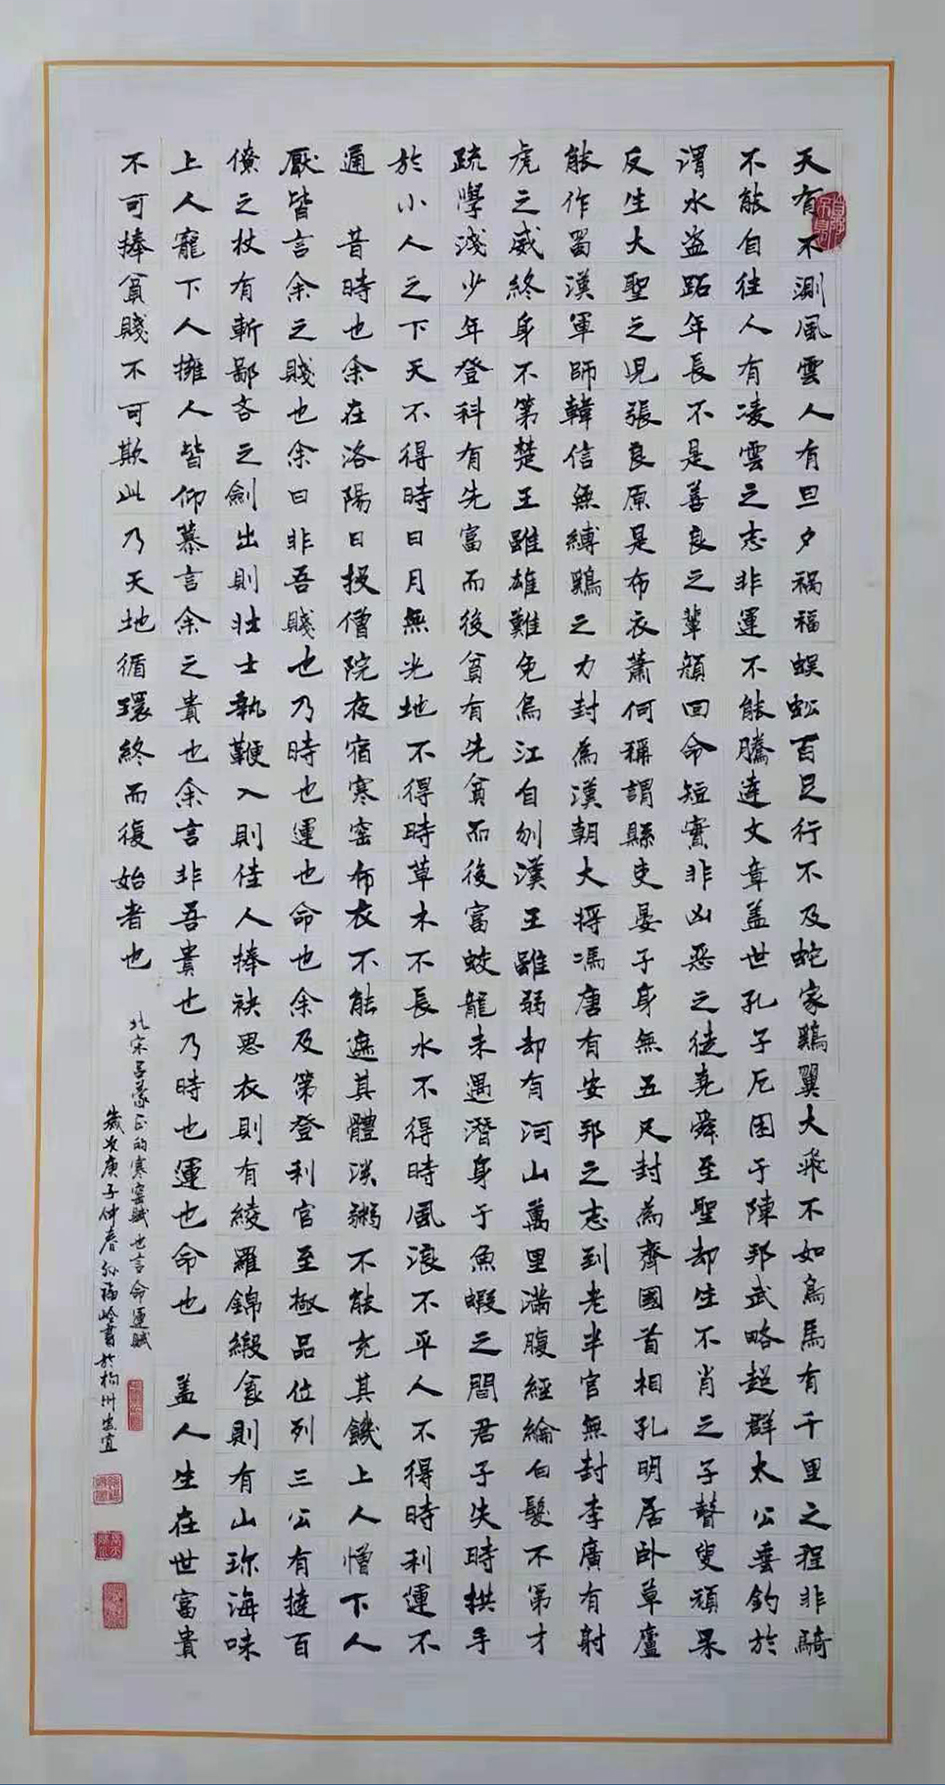 天有不測風雲人有旦夕禍福蜈蚣百足行不及蛇家鷄翼大飛不如鳥馬有千里之程非騎
不能自往人有凌雲之志非運不能騰達文章蓋世孔子厄困于陳邦武略超群太公垂釣於
渭水盜跖年長不是善良之輩顏回命短實非凶惡之徒堯舜至聖却生不肖之子瞽叟頑呆
反生大聖之児張良原是布衣蕭何稱謂縣吏晏子身無五尺封為齊國首相孔明居卧草廬
能作蜀漢軍師韓信無縛鷄之力封為漢朝大将馮唐有安邦之志到老半官無封李廣有射
虎之威終身不第楚王雖雄難免烏江自刎漢王雖弱却有河山萬里滿腹經綸白髮不第才
疏學淺少年登科有先富而後貧有先貧而後富蛟龍未遇潛身于魚蝦之間君子失時拱手
於小人之下天不得時日月無光地不得時草木不長水不得時風浪不平人不得時利運不
通 昔時也余在洛陽日投僧院夜宿寒窑布衣不能遮其體淡粥不能充其饑上人憎下人
厭皆言余之賤也余曰非吾賤也乃時也運也命也余及第登利官至極品位列三公有撻百
僚之杖有斬鄙吝之劍出則壮士執鞭入則佳人捧袂思衣則有綾羅錦緞食則有山珎海味
上人寵下人擁人皆仰慕言余之貴也余言非吾貴也乃時也運也命也 蓋人生在世富貴
不可捧貧賤不可欺此乃天地循環終而復始者也
北宋吕蒙正的寒窑賦也言命運賦
歲次庚子仲春孙福岭書於柯州